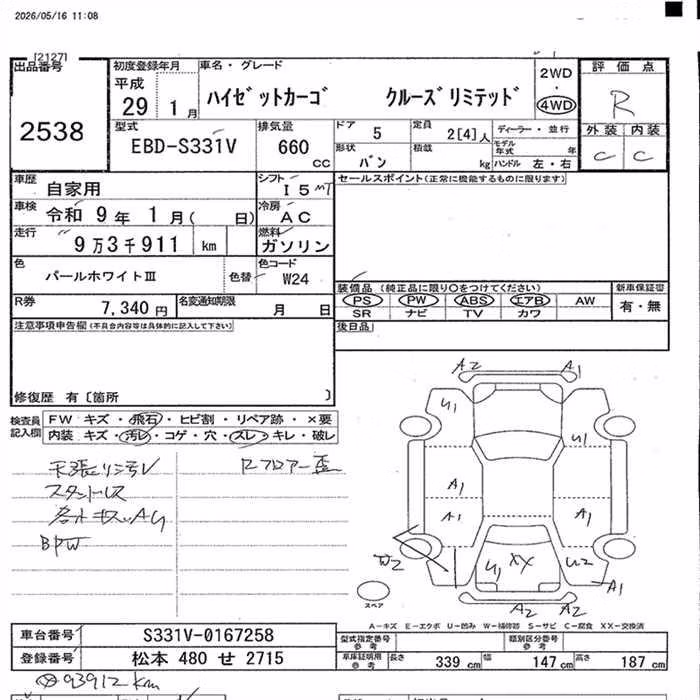 2026/05/16 11:08
[2127]
出品番号
2538
初度登録年月
平成
29 1 月
車名・グレード
ハイゼットカーゴ クルーズリミテッド
2WD
・
4WD
評価点
R
外装 内装
C C
型式
EBD-S331V
排気量
660
cc
ドア 5
定員 2[4]人
形状 バン
積載 kg
ディーラー・並行
モデル年式 年
ハンドル 左・右
車歴 自家用
シフト I5MT
車検 令和 9年 1月( 日)
冷房 AC
走行 9万3千911 km
燃料 ガソリン
色 パールホワイトⅢ
色替
色コード W24
R券 7,340円
名変通知期限 月 日
セールスポイント(正常に機能するものに限ります)
装備品 (純正品に限り〇をつけてください)
PS PW ABS エアB AW
SR ナビ TV カワ
新車保証書
有・無
後日品
注意事項申告欄(不具合内容等は具体的に記入して下さい)
修復歴 有〔箇所 〕
検査員記入欄
FW キズ・飛石・ヒビ割・リペア跡・×要
内装 キズ・汚レ・コゲ・穴・ズレ・キレ・破レ
スタッドレス
BPW
A2 A1
U1 U1
A1
A1 A1
W2
U1 XX U2
A1
A2 A2
スペア
A-キズ E-エクボ U-凹み W-補修跡 S-サビ C-腐食 XX-交換済
車台番号 S331V-0167258
登録番号 松本 480 せ 2715
型式指定番号
参考
類別区分番号
参考
車庫証明用
参考
長さ 339 cm 幅 147 cm 高さ 187 cm
93912km